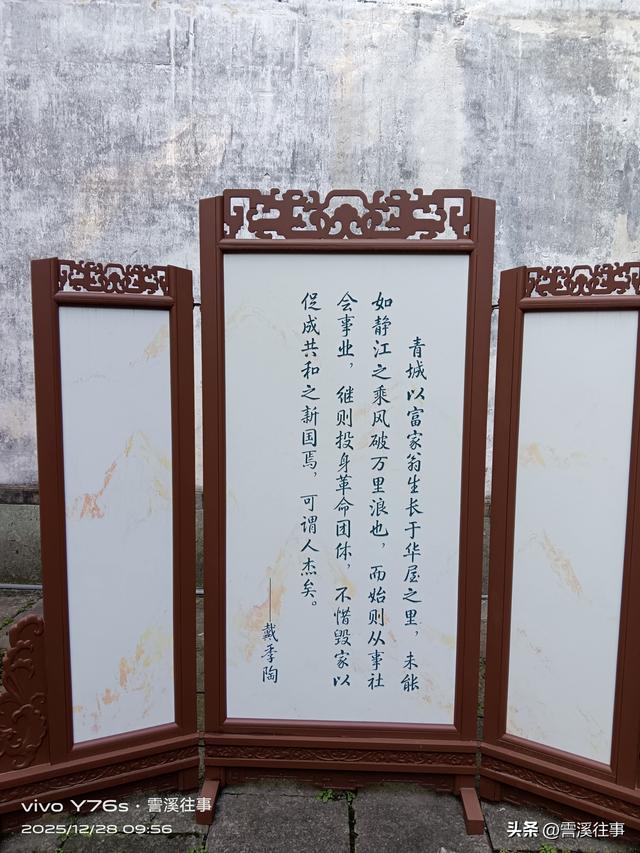 青城以富家翁生长于华屋之里，未能
如静江之乘风破万里浪也，而始则从事社
会事业，继则投身革命团体，不惜毁家以
促成共和之新国焉，可谓人杰矣。
——戴季陶
vivo Y76s · 霅溪往事
2025/12/28 09:56
头条 @霅溪往事